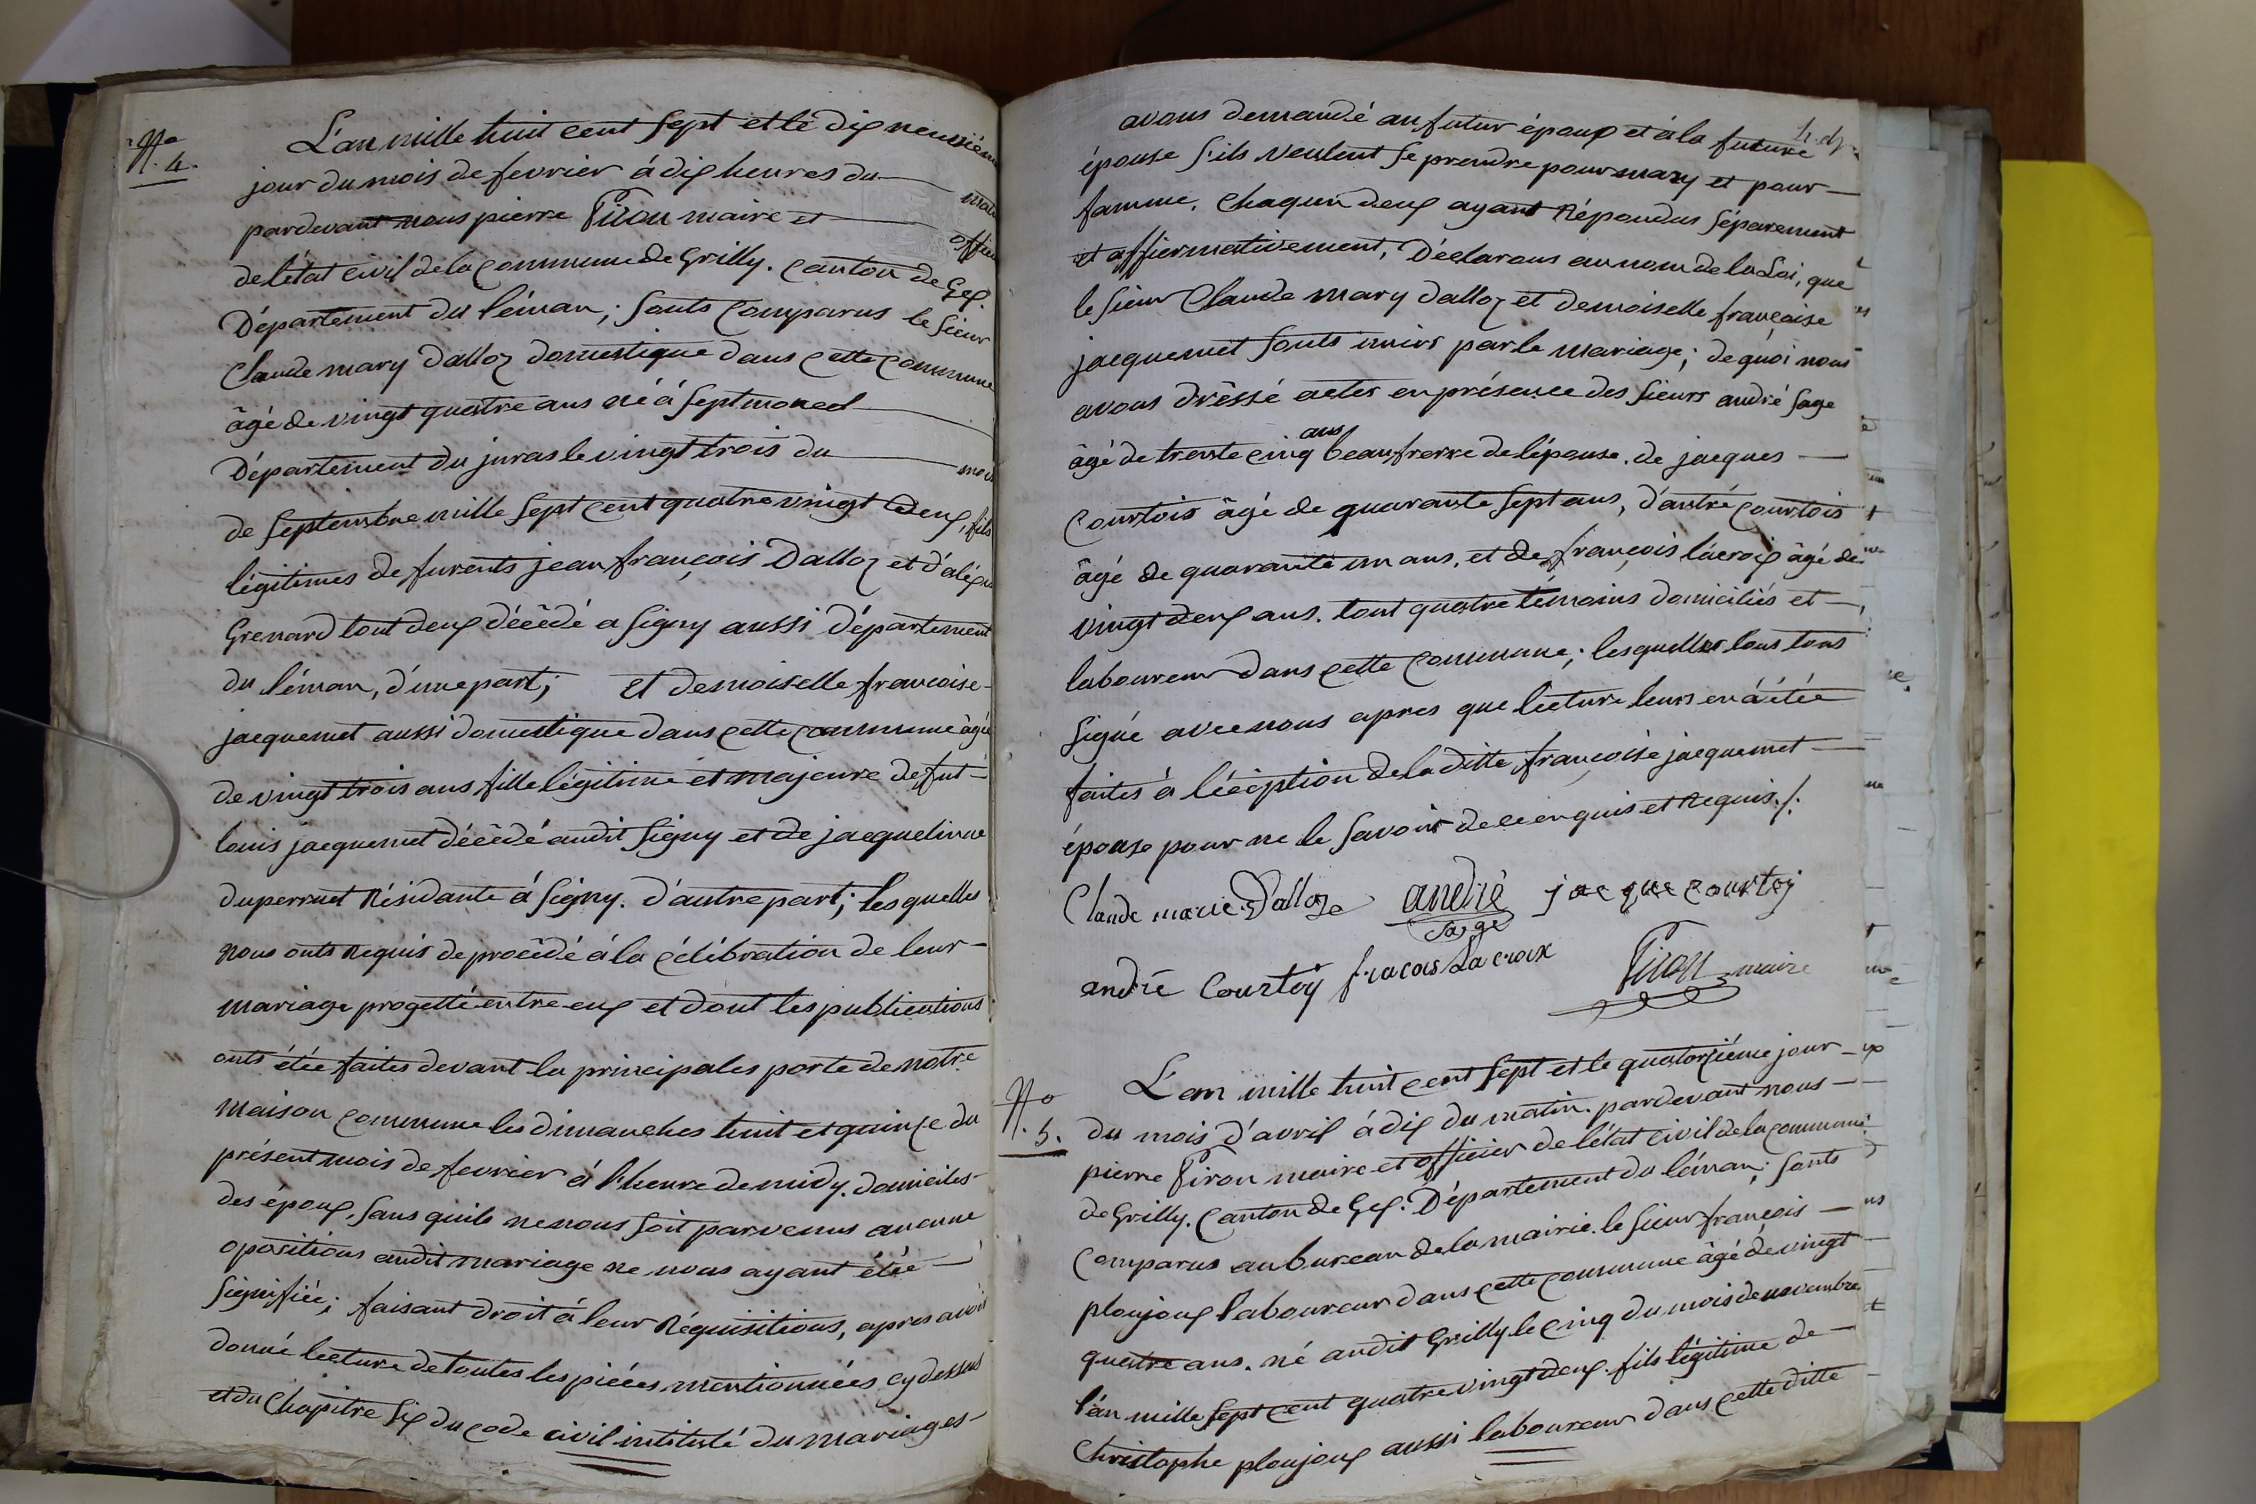 No
4.
L'an mille huit cent sept et le dix neuviém
jour du mois de fevrier á dix heures du matin
pardevant nous pierre Piron maire et officier
de létat civil de la Commune de Grilly. Canton de Gex.
Département du léman; sonts Comparus le sieur
Claude mary Dalloz domestique dans cette Commune
âgé de vingt quatre ans né á septmoncel
Département du juras le vingt trois du mois
de septembre mille sept cent quatre vingt deux, fils
légitimes de furents jean françois Dalloz et d'aléxi
Grenard tout deux décédé a Signy aussi Département
du léman, d'une part; et demoiselle françoise
jacquemet aussi domestique dans cette commune âgée
de vingt trois ans fille légitime et majeure de fut
louis jacquemet décédé audit Signy et de jacquelinne
duperruet Résidante á Signy. d'autre part; lesquelles
nous onts Requis de procédé á la célébration de leur
mariage progetté entre eux et dont les publications
onts étée faites devant la principales porte de notre
maison commune les dimanches huit et quinze du
présent mois de fevrier á l'heure de midy. domiciles
des époux, sans quils ne nous soit parvenus aucune
opositions audit mariage ne nous ayant étée
signifiée; faisant droit á leur Réquisitions, apres avoir
donné lecture de toutes les piéces mentionnées cy dessus
et du Chapitre six du code civil intitulé du mariages
avons demandé au futur époux et á la future
épouse s'ils veulent se prendre pour mary et pour
famme, Chaqun deux ayant Répondus séparement
et affiermativement, Déclarons au nom de la Loi, que
le sieur Claude mary dalloz et demoiselle françoise
jacquemet sonts unirs par le mariage; de quoi nous
avons dréssé actes en présence des sieurs andré sage
âgé de trente cinq ans beaufrerre de lépouse. de jacques
Courtois âgé de quarante sept ans, d'antré Courtois
âgé de quarante un ans, et de françois lácroix âgé de
vingt deux ans. tout quatre témoins domiciliés et
laboureur dans cette Commune; lesquelles tous tons
signé avec nous apres que lecture leurs en á étée
faites á léciption de la ditte françoise jacquemet
épouse pour ne le savoir de ce enquis et Requis ./.
Claude marie Dalloz andré sage jacque courtoj
andré Courtoy fracois Lacroix Piron maire
No
5.
L'an mille huit cent sept et le quatorziéme jour
du mois d'avril á dix du matin. pardevant nous
pierre Piron maire et officier de létat civil de la commune
de Grilly. Canton de Gex. Département du léman; sonts
Comparus au bureau de la mairie. le sieur françois
ploujoux laboureur dans cette commune âgé de vingt
quatre ans. né audit Grilly le cinq du mois de novembre
l'an mille sept cent quatre vingt deux. fils légitime de
Christophe ploujoux aussi laboureur dans cette ditte